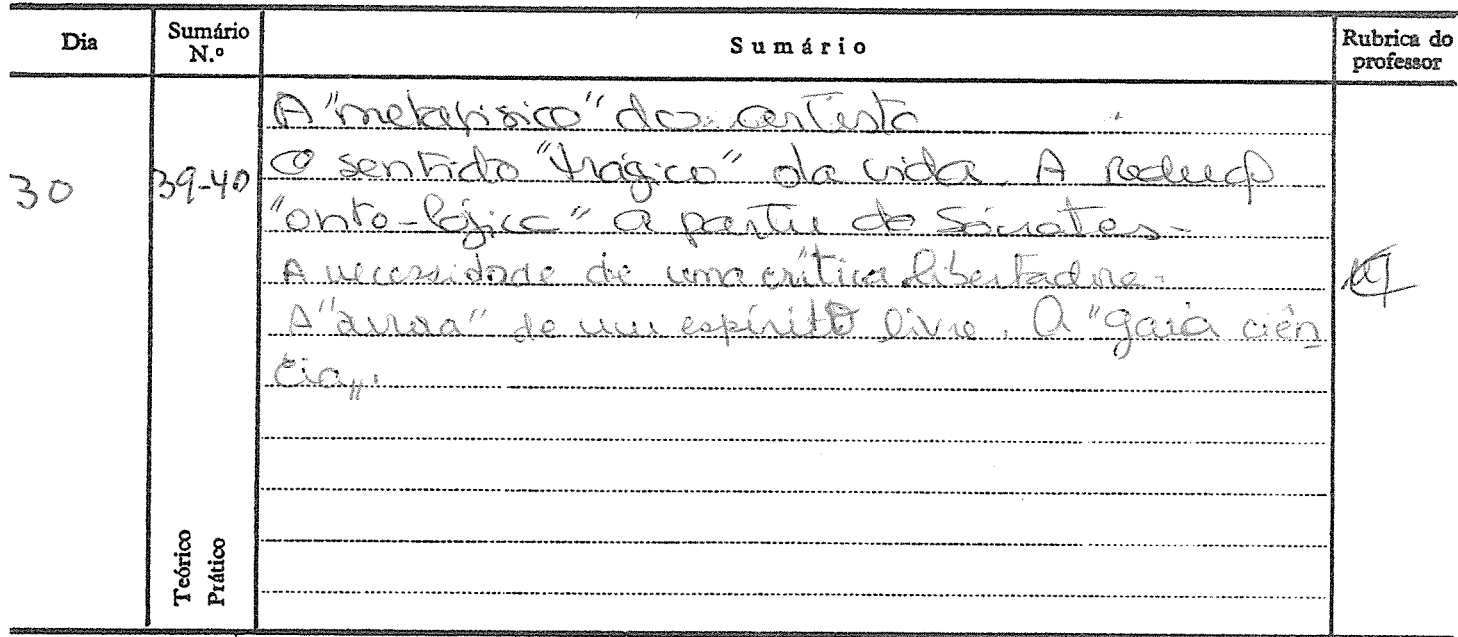 Dia
Sumário N.º
Sumário
Rubrica do professor
A "metafísica" do artista
30
39-40
O sentido "trágico" da vida. A redução
"onto-lógica" a partir de Sócrates.
A necessidade de uma crítica libertadora.
A "aurora" de um espírito livre. A "gaia ciên
cia".
Teórico
Prático